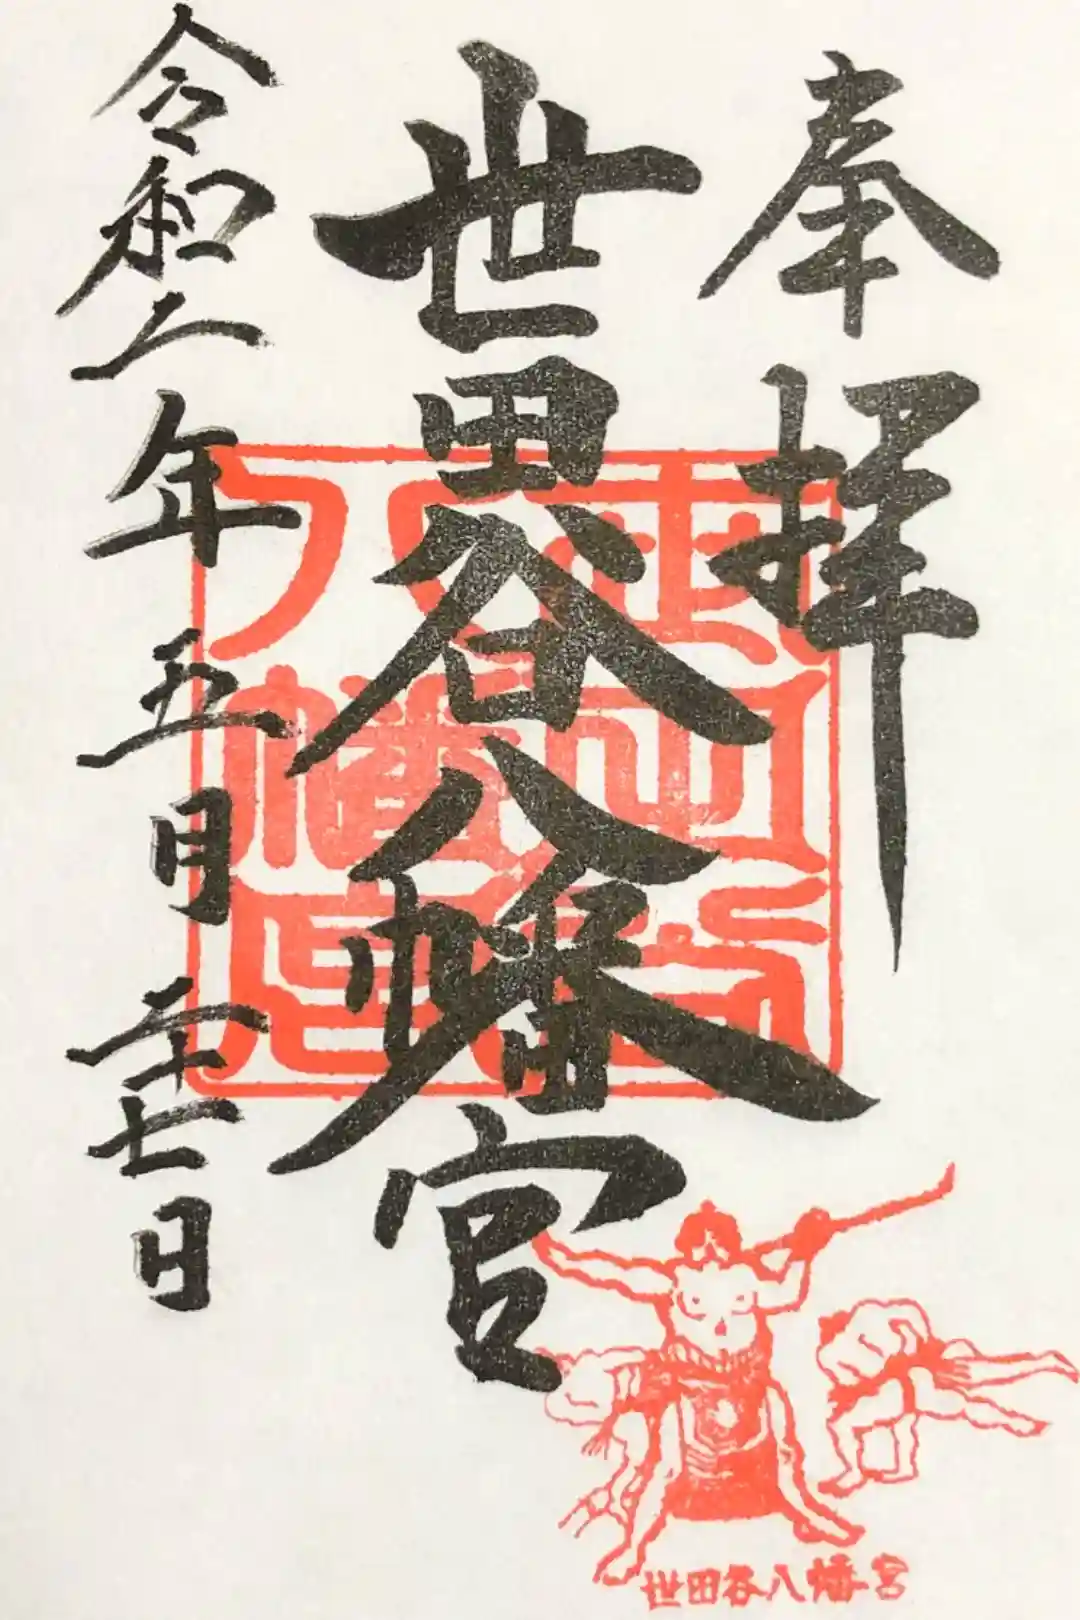 奉拝
世田谷八幡宮
令和二年五月二十七日
世田谷八幡宮
世田谷八幡宮